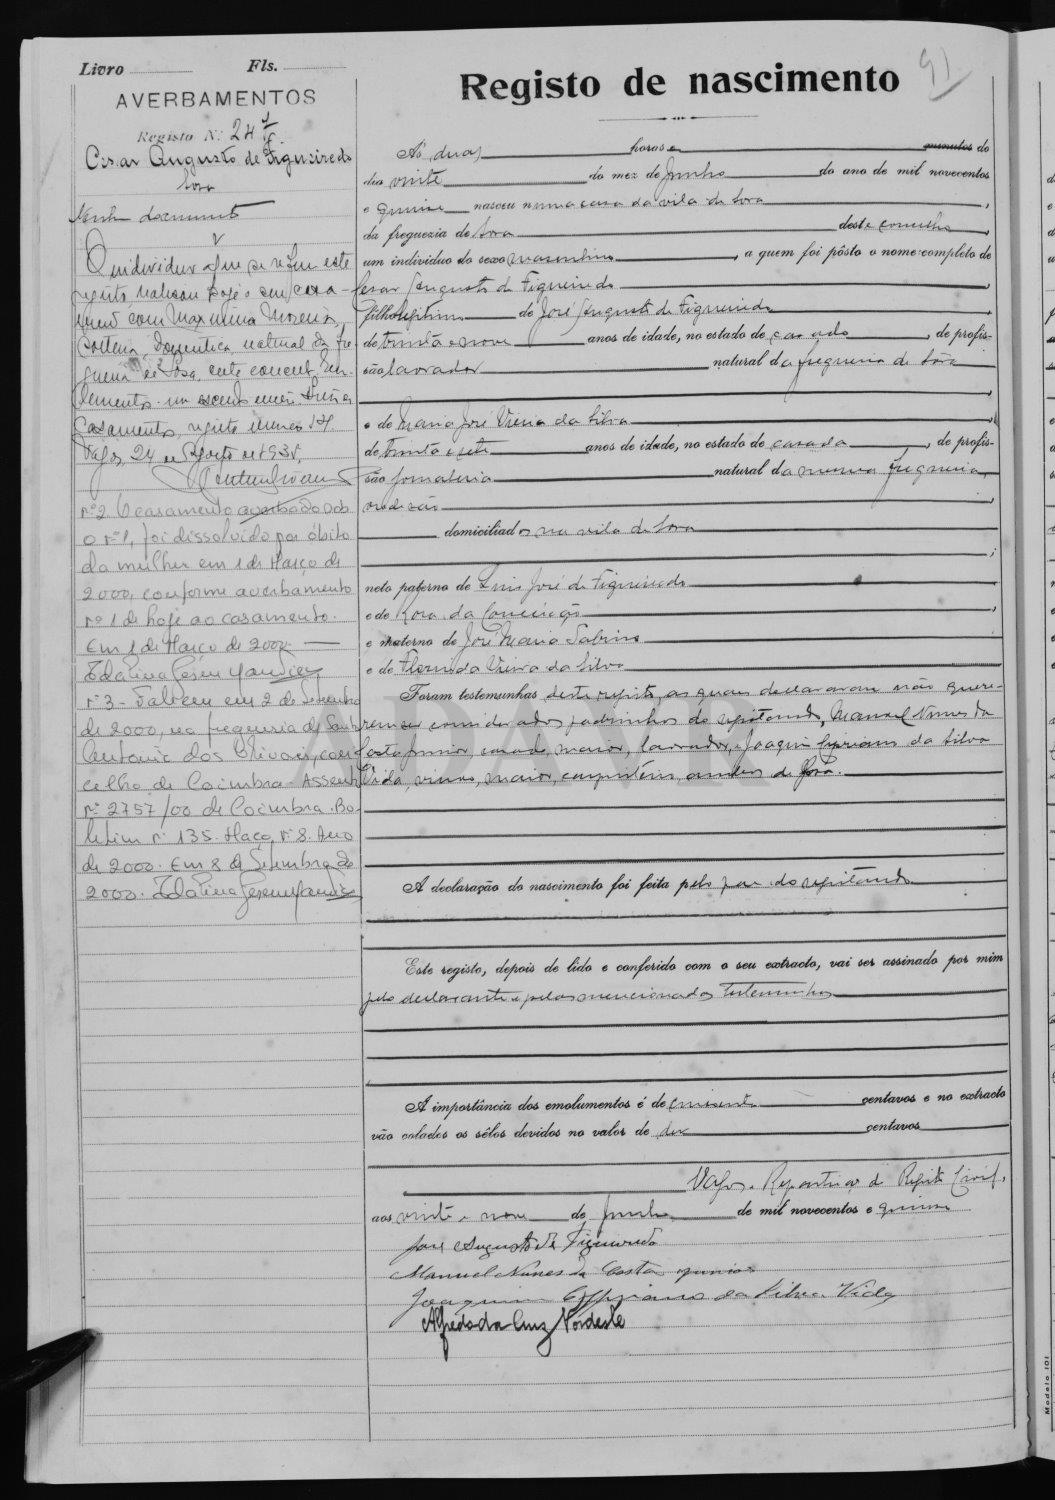 Livro Fls.
AVERBAMENTOS
Registo N.º 241
Cesar Augusto de Figueiredo
Sosa
Nenhum documento
O individuo a que se refere este
registo, realisou hoje o seu casa-
mento com Maximina Moreira,
solteira, domestica, natural da fre-
guesia de Sosa, este concelho.
casamentos, registo numero 124.
Vagos, 24 de Agosto de 1935.
nº 2. O casamento averbado sob
o nº 1, foi dissolvido por óbito
da mulher em 1 de Março de
2000, conforme averbamento
nº 1 de hoje ao casamento.
Em 1 de Março de 2000.
nº 3 - Faleceu em 2 de Setembro
de 2000, na freguesia de Santo
António dos Olivais, con
celho de Coimbra. Assento
nº 2757/00 de Coimbra. Bo
letim nº 135. Maço nº 8. Ano
de 2000. Em 8 de Setembro de
2000.
91
Registo de nascimento
Ás duas horas e minutos do
dia vinte do mez de Junho do ano de mil novecentos
e quinze nasceu numa casa da vila de Sosa,
da freguezia de Sosa deste concelho,
um individuo do sexo masculino, a quem foi pôsto o nome completo de
Cesar Augusto de Figueiredo
filho legitimo de José Augusto de Figueiredo
de trinta e nove anos de idade, no estado de casado, de profis-
são lavrador natural da freguesia de Sosa
e de Maria José Vieira da Silva
de trinta e sete anos de idade, no estado de casada, de profis-
são jornaleira natural da mesma freguesia,
domiciliados na vila de Sosa
neto paterno de Luis José de Figueiredo
e de Rosa da Conceição,
e materno de José Maria Sabino
e de Florinda Vieira da Silva
Foram testemunhas deste registo, as quais declararam não quere-
rem ser considerados padrinhos do registando, Manuel Nunes da
Costa Junior, casado, maior, lavrador, e Joaquim Cipriano da Silva
Vida, viuvo, maior, carpinteiro, ambos de Sosa.
ADAVR
A declaração do nascimento foi feita pelo pae do registando
Este registo, depois de lido e conferido com o seu extracto, vai ser assinado por mim
pelo declarante e pelas mencionadas testemunhas
A importância dos emolumentos é de cincoenta centavos e no extracto
vão colados os sêlos devidos no valor de dez centavos
Vagos, Repartição do Registo Civil,
aos vinte e nove de Junho de mil novecentos e quinze
José Augusto de Figueiredo
Manuel Nunes da Costa junior
Joaquim Cypriano da Silva Vida
Alfredo da Cruz Nordeste
Modelo 101